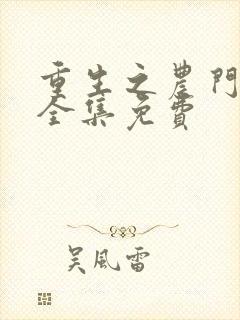 重生之農門
全集免費
吴風雷